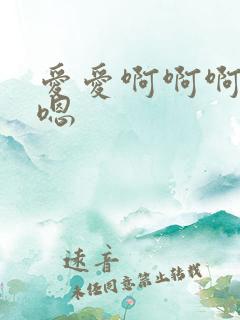 愛愛啊啊啊
嗯
速音
未经同意禁止转载